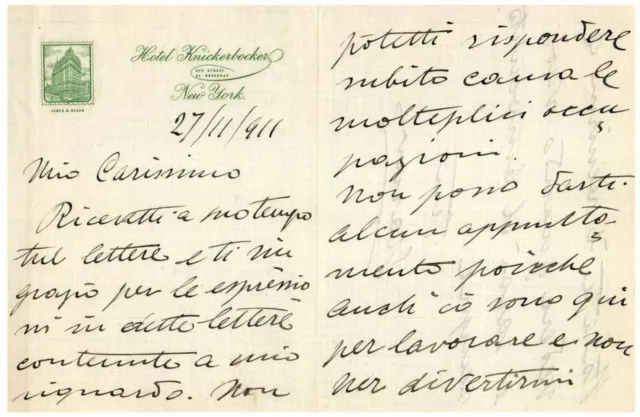 Hotel Knickerbocker
42D STREET
AT BROADWAY
New York.
JAMES B. REGAN
27/11/911
Mio Carissimo
Ricevetti a suo tempo
tue lettere e ti rin
grazio per le espressio
ni in dette lettere
contenute a mio
riguardo. Non
potetti rispondere
subito causa le
molteplici occu
pazioni.
Non posso darti
alcun appunta
mento poicche
anch'io sono qui
per lavorare e non
per divertirmi